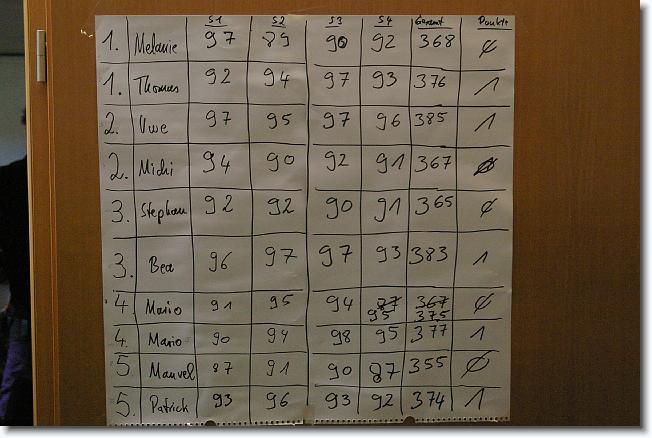 S1 S2 S3 S4 Gesamt Punkte
1. Melanie 97 89 90 92 368 0
1. Thomas 92 94 97 93 376 1
2. Uwe 97 95 97 96 385 1
2. Michi 94 90 92 91 367 0
3. Stephan 92 92 90 91 365 0
3. Bea 96 97 97 93 383 1
4. Mario 91 95 94 77 367 0
95 375
4. Mario 90 94 98 95 377 1
5. Manuel 87 91 90 87 355 0
5. Patrick 93 96 93 92 374 1